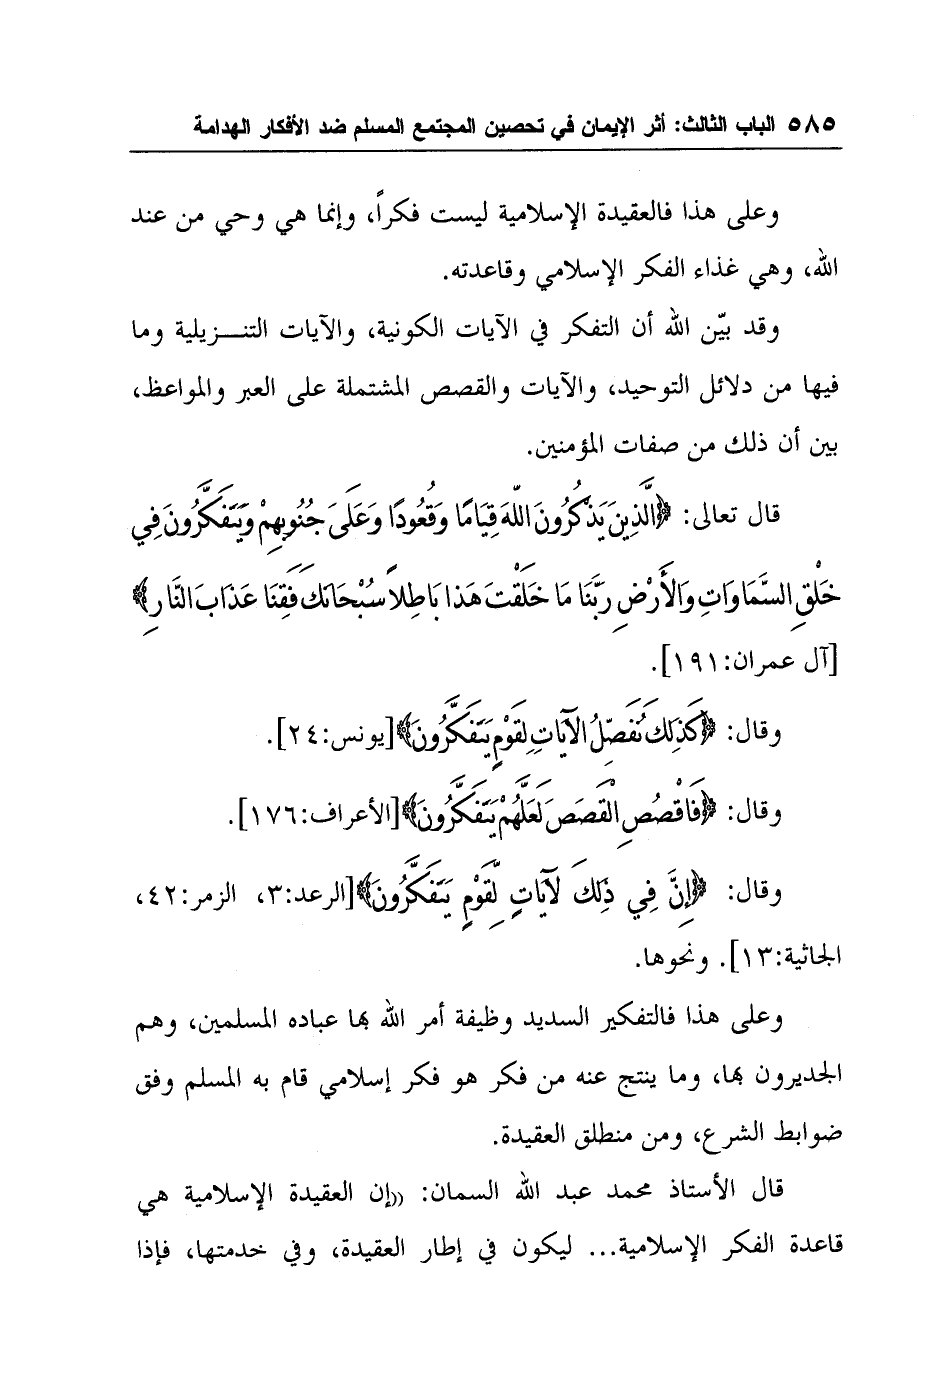 ٥٨٥ الباب الثالث: أثر الإيمان في تحصين المجتمع المسلم ضد الأفكار الهدامة
وعلى هذا فالعقيدة الإسلامية ليست فكراً، وإنما هي وحي من عند
الله، وهي غذاء الفكر الإسلامي وقاعدته.
وقد بيّن الله أن التفكر في الآيات الكونية، والآيات التنـزيلية وما
فيها من دلائل التوحيد، والآيات والقصص المشتملة على العبر والمواعظ،
بين أن ذلك من صفات المؤمنين.
قال تعالى: ﴿الَّذِينَ يَذْكُرُونَ اللَّهَ قِيَامًا وَقُعُودًا وَعَلَىٰ جُنُوبِهِمْ وَيَتَفَكَّرُونَ فِي
خَلْقِ السَّمَاوَاتِ وَالأَرْضِ رَبَّنَا مَا خَلَقْتَ هَذَا بَاطِلاً سُبْحَانَكَ فَقِنَا عَذَابَ النَّارِ﴾
[آل عمران:١٩١].
وقال: ﴿كَذَلِكَ نُفَصِّلُ الآيَاتِ لِقَوْمٍ يَتَفَكَّرُونَ﴾[يونس:٢٤].
وقال: ﴿فَاقْصُصِ الْقَصَصَ لَعَلَّهُمْ يَتَفَكَّرُونَ﴾[الأعراف:١٧٦].
وقال: ﴿إِنَّ فِي ذَلِكَ لَآيَاتٍ لِّقَوْمٍ يَتَفَكَّرُونَ﴾[الرعد:٣، الزمر:٤٢،
الجاثية:١٣]. ونحوها.
وعلى هذا فالتفكير السديد وظيفة أمر الله بها عباده المسلمين، وهم
الجديرون بها، وما ينتج عنه من فكر هو فكر إسلامي قام به المسلم وفق
ضوابط الشرع، ومن منطلق العقيدة.
قال الأستاذ محمد عبد الله السمان: ((إن العقيدة الإسلامية هي
قاعدة الفكر الإسلامية... ليكون في إطار العقيدة، وفي خدمتها، فإذا